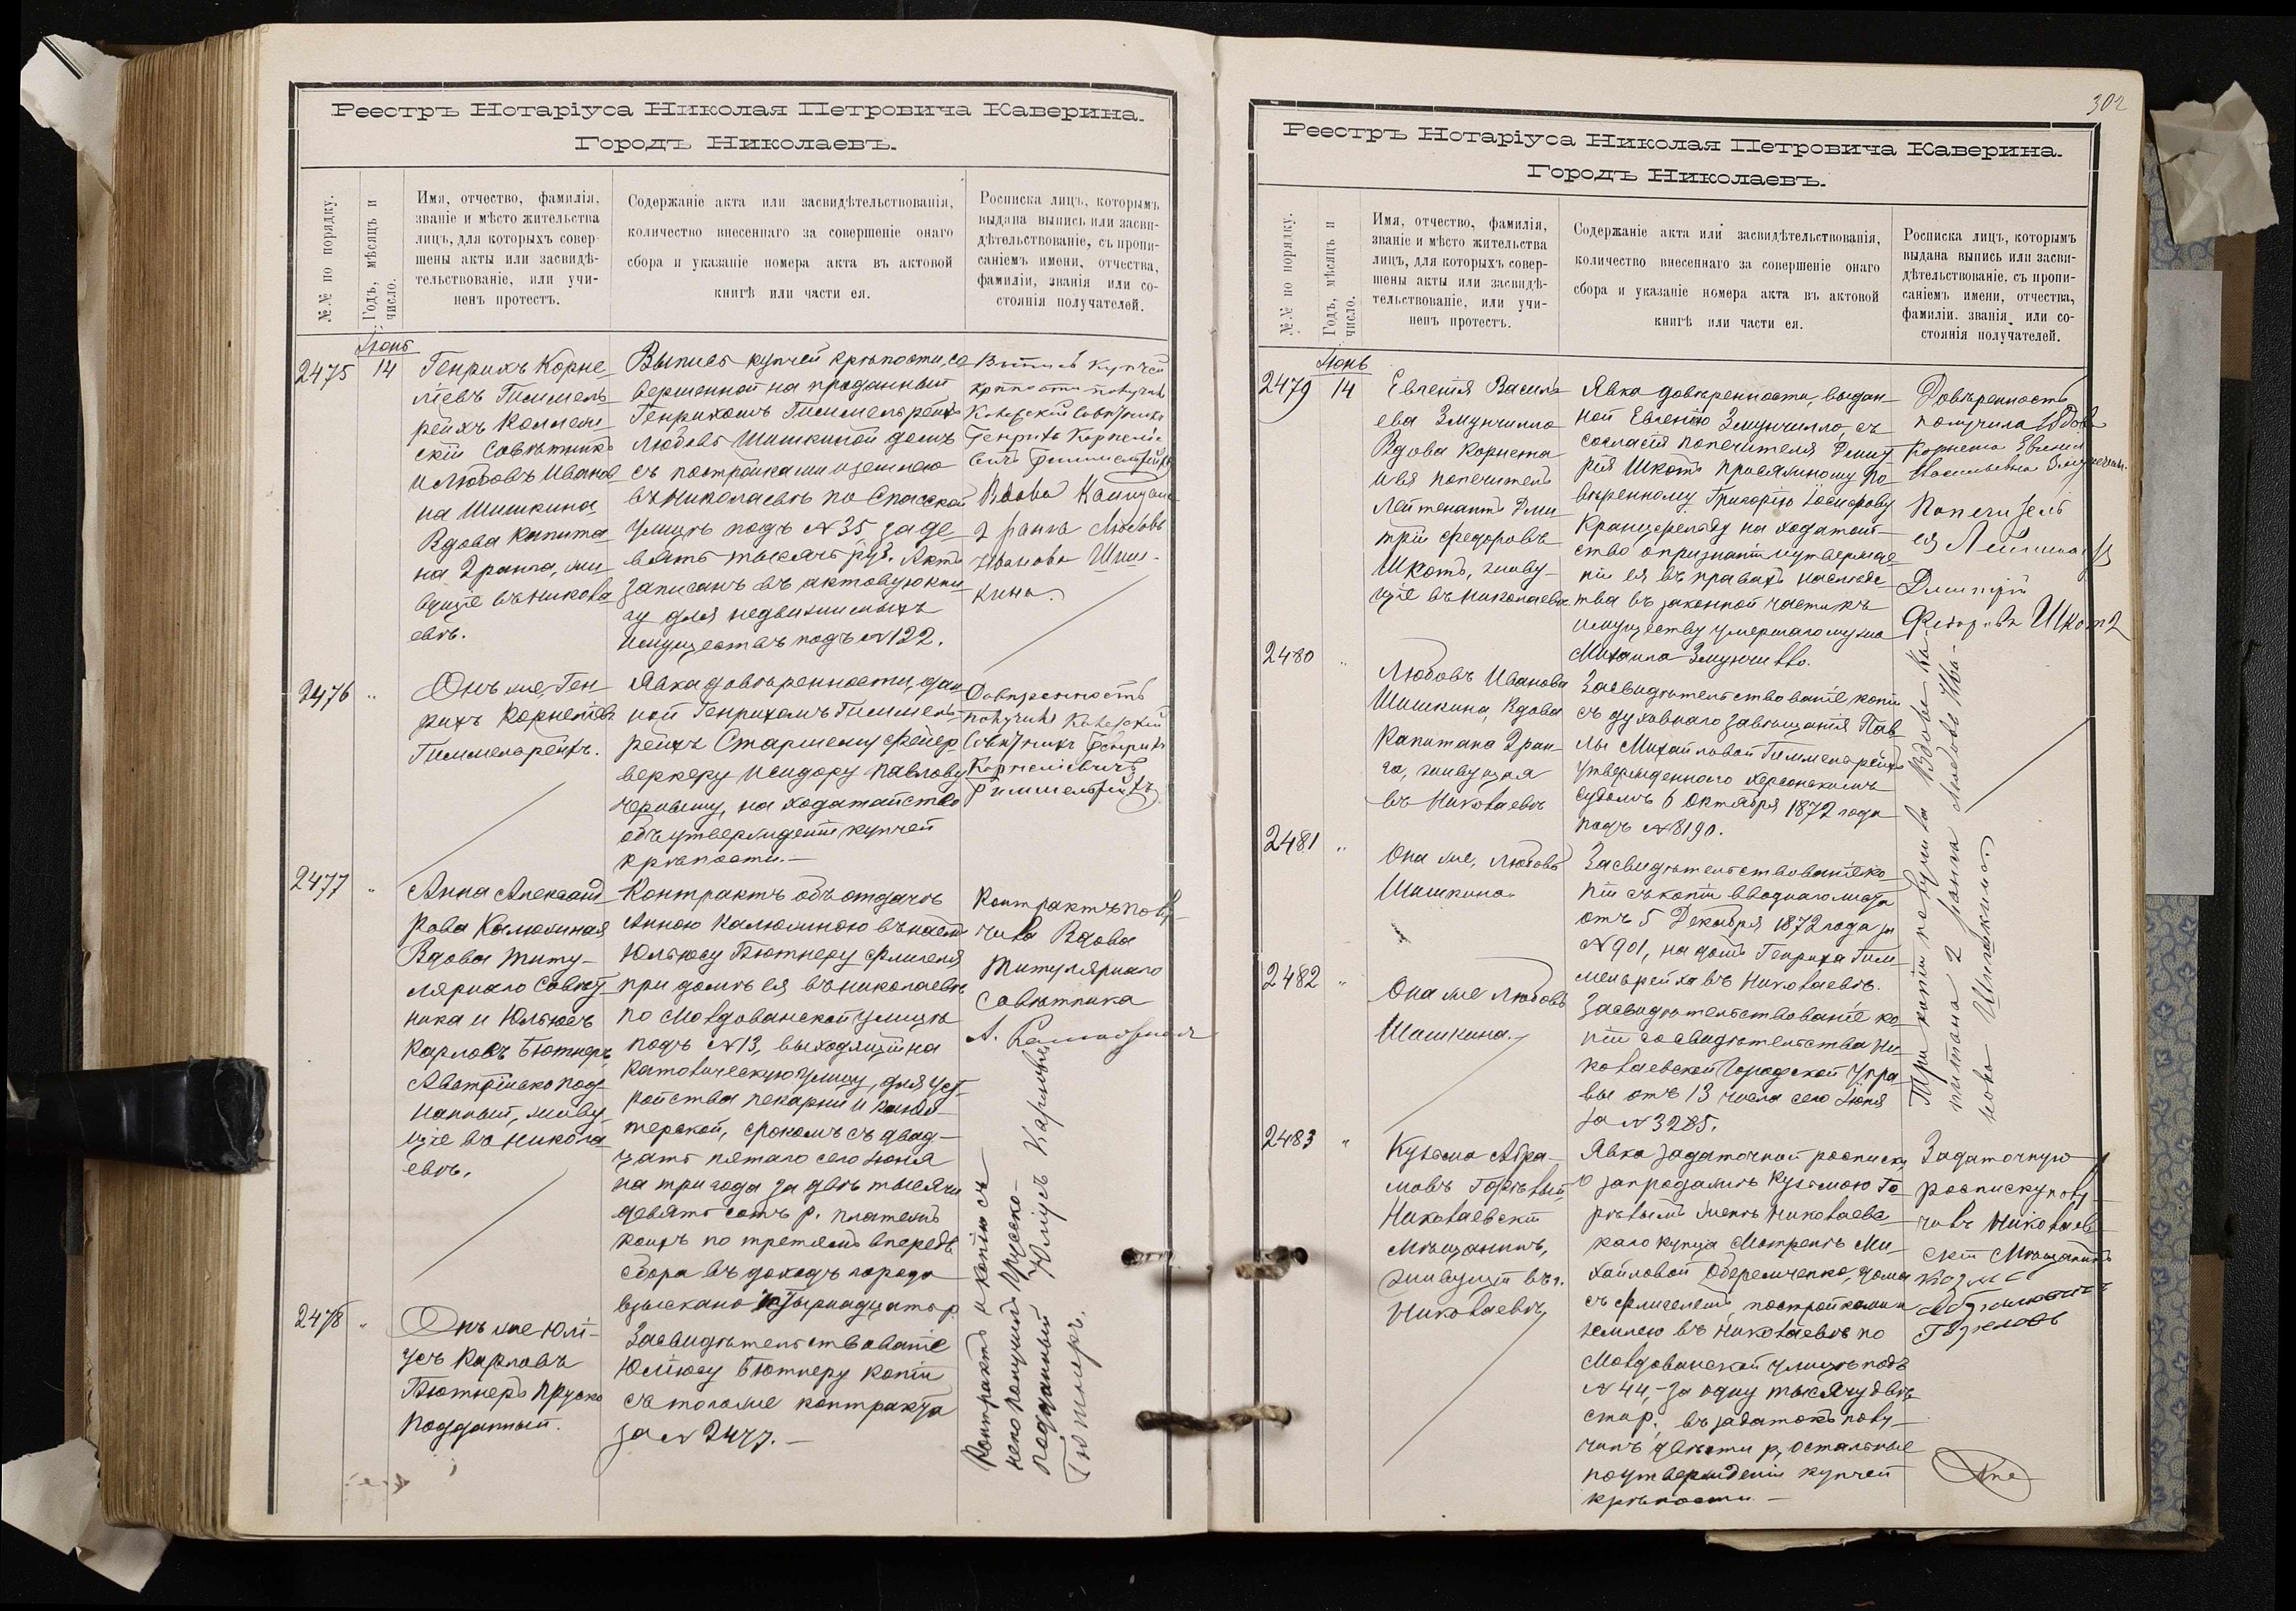 Реестръ Нотаріуса Николая Петровича Каверина.
Городъ Николаевъ.
№№ по порядку.
Годъ, мѣсяцъ и
число.
Имя, отчество, фамилія,
званіе и мѣсто жительства
лицъ, для которыхъ совер-
шены акты или засвидѣ-
тельствованіе, или учи-
ненъ протестъ.
Содержаніе акта или засвидѣтельствованія,
количество внесеннаго за совершеніе онаго
сбора и указаніе номера акта въ актовой
книгѣ или части ея.
Росписка лицъ, которымъ
выдана выпись или засви-
дѣтельствованіе, съ пропи-
саніемъ имени, отчества,
фамиліи, званія или со-
стоянія получателей.
Іюнь
2475 14
Генрихъ Корне-
ліевъ Гиммель-
рейхъ Коллеж-
скій Совѣтникъ
и Любовь Иванов-
на Шишкина
Вдова Капита-
на 2 ранга, жи-
вущіе въ Никола-
евѣ.
Выпись купчей крѣпости, со-
вершенной на проданный
Генрихомъ Гиммельрейхъ
Любовь Шишкиной домъ
съ постройками и землею
въ Николаевѣ по Спасской
улицѣ подъ №35 за де-
вять тысячъ руб. Актъ
записанъ въ актовую кни-
гу для недвижимыхъ
имуществъ подъ №122.
Выпись купчей
крѣпости получилъ
Коллежскій Совѣтникъ
Генрихъ Корнелі-
евичъ Гиммельрейхъ
Вдова Капитана
2 ранга Любовь
Иванова Шиш-
кина.
2476 "
Онъ же, Ген-
рихъ Корнеліевъ
Гиммельрейхъ.
Явка довѣренности, дан-
ной Генрихомъ Гиммель-
рейхъ Старшему фейер-
веркеру Исидору Павлову
на ходатайство
объ утвержденіи купчей
крѣпости.—
Довѣренность
получилъ Коллежскій
Совѣтникъ Генрихъ
Корнеліевичъ
Гиммельрейхъ
2477 "
Анна Александ-
рова Калюжная
Вдова Титу-
лярнаго Совѣт-
ника и Юліусъ
Карловъ Бютнеръ
Австрійско под-
данный, живу-
щіе въ Никола-
евѣ.
Контрактъ объ отдачѣ
Анною Калюжною въ наемъ
Юліусу Бютнеру флигеля
при домѣ ея въ Николаевѣ
по Молдованской улицѣ
подъ №13, выходящій на
Католическую улицу, для уст-
ройства пекарни и конди-
терской, срокомъ съ двад-
цать пятаго сего Іюня
на три года за двѣ тысячи
девятьсотъ р. платежъ
коихъ по третямъ впередъ
сбора въ доходъ города
взыскано четырнадцать р.
Контрактъ полу-
чила Вдова
Титулярнаго
Совѣтника
А. Калюжная
2478 "
Онъ же Юлі-
усъ Карловъ
Бютнеръ Прусско
подданный.
Засвидѣтельствованіе
Юліусу Бютнеру копіи
съ того же контракта
за №2477.—
Контрактъ и копію съ
него получилъ Прусско-
подданный Юліусъ Карловъ
Бютнеръ.
302
Реестръ Нотаріуса Николая Петровича Каверина.
Городъ Николаевъ.
№№ по порядку.
Годъ, мѣсяцъ и
число.
Имя, отчество, фамилія,
званіе и мѣсто жительства
лицъ, для которыхъ совер-
шены акты или засвидѣ-
тельствованіе, или учи-
ненъ протестъ.
Содержаніе акта или засвидѣтельствованія,
количество внесеннаго за совершеніе онаго
сбора и указаніе номера акта въ актовой
книгѣ или части ея.
Росписка лицъ, которымъ
выдана выпись или засви-
дѣтельствованіе, съ пропи-
саніемъ имени, отчества,
фамиліи. званія или со-
стоянія получателей.
Іюнь
2479 14
Евгенія Василь-
ева Змунчилло
Вдова Корнета
и ея попечитель
Лейтенантъ Дми-
трій Федоровъ
Шкотъ, живу-
щіе въ Николаевѣ
Явка довѣренности, выдан-
ной Евгеніею Змунчилло, съ
согласія попечителя Дмит-
рія Шкотъ присяжному По-
вѣренному Григорію Іосифову
на ходатай-
ство о признаніи и утвержде-
ніи ея въ правахъ наслѣдс-
тва въ законной части къ
имуществу умершаго мужа
Михаила Змунчилло.
Довѣренность
получила Вдова
Корнета Евгенія
Васильевна Змунчилло.
Попечитель
ея Лейтенантъ
Дмитрій
Федоровъ Шкотъ
2480 "
Любовь Иванова
Шишкина, Вдова
Капитана 2 ран-
га, живущая
въ Николаевѣ
Засвидѣтельствованіе копіи
съ духовнаго завѣщанія Пав-
лы Михайловой Гиммельрейхъ
утвержденнаго Херсонскимъ
судомъ 6 Октября 1872 года
подъ №8190.
2481 "
Она же, Любовь
Шишкина.
Засвидѣтельствованіе ко-
піи съ копіи вводнаго листа
отъ 5 Декабря 1872 года за
№901, на домъ Генриха Гим-
мельрейха въ Николаевѣ.
2482 "
Она же Любовь
Шишкина.
Засвидѣтельствованіе ко-
піи со свидѣтельства Ни-
колаевской Городской Упра-
вы отъ 13 числа сего Іюня
за №3285.
Три копіи получила Вдова Ка-
питана 2 ранга Любовь Ива-
нова Шишкина.
2483 "
Кузьма Абра-
мовъ Горѣвый,
Николаевскій
Мѣщанинъ,
живущій въ г.
Николаевѣ,
Явка задаточной росписки
о запродажѣ Кузьмою Го-
рѣвымъ женѣ Николаевс-
каго купца Мотренѣ Ми-
хайловой Оберемченко, дома
съ флигелемъ, постройками и
землею въ Николаевѣ по
Молдованской улицѣ подъ
№44,- за одну тысячу двѣ-
сти р. въ задатокъ полу-
чилъ двѣсти р, остальные
по утвержденіи купчей
крѣпости —
Задаточную
росписку полу-
чилъ Николаев-
скій Мѣщанинъ
Козма